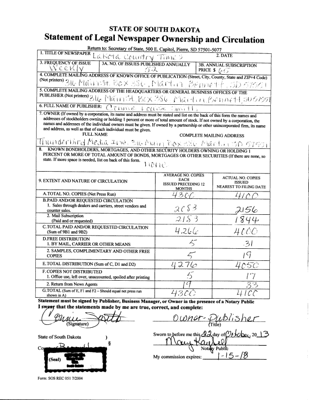 STATE OF SOUTH DAKOTA
Statement of Legal Newspaper Ownership and Circulation
Return to: Secretary of State, 500 E. Capitol, Pierre, SD 57501-5077
1. TITLE OF NEWSPAPER Lakota Country Times 2. DATE
3. FREQUENCY OF ISSUE Weekly 3A. NO. OF ISSUES PUBLISHED ANNUALLY 3B. ANNUAL SUBSCRIPTION PRICE $
4. COMPLETE MAILING ADDRESS OF KNOWN OFFICE OF PUBLICATION (Street, City, County, State and ZIP+4 Code)
(Not printers) Martin Bennett SD 57551
5. COMPLETE MAILING ADDRESS OF THE HEADQUARTERS OR GENERAL BUSINESS OFFICES OF THE
PUBLISHER (Not printers) Martin Bennett SD 57551
6. FULL NAME OF PUBLISHER: Connie Smith
7. OWNER (If owned by a corporation, its name and address must be stated and list on the back of this form the names and
addresses of stockholders owning or holding 1 percent or more of total amount of stock. If not owned by a corporation, the
names and addresses of the individual owners must be given. If owned by a partnership or other unincorporated firm, its name
and address, as well as that of each individual must be given.
FULL NAME COMPLETE MAILING ADDRESS
SD 57551
8. KNOWN BONDHOLDERS, MORTGAGEES, AND OTHER SECURITY HOLDERS OWNING OR HOLDING 1
PERCENT OR MORE OF TOTAL AMOUNT OF BONDS, MORTGAGES OR OTHER SECURITIES (If there are none, so
state. If more space is needed, list on back of this form.
None
9. EXTENT AND NATURE OF CIRCULATION AVERAGE NO. COPIES EACH ISSUED PRECEDING 12 MONTHS ACTUAL NO. COPIES ISSUED NEAREST TO FILING DATE
A. TOTAL NO. COPIES (Net Press Run) 4300 4100
B. PAID AND/OR REQUESTED CIRCULATION
1. Sales through dealers and carriers, street vendors and
counter sales. 2083 2156
2. Mail Subscription
(Paid and or requested) 2183 1844
C. TOTAL PAID AND/OR REQUESTED CIRCULATION
(Sum of 9B1 and 9B2) 4266 4000
D. FREE DISTRIBUTION
1. BY MAIL, CARRIER OR OTHER MEANS 5 31
2. SAMPLES, COMPLIMENTARY AND OTHER FREE
COPIES 5 19
E. TOTAL DISTRIBUTION (Sum of C, D1 and D2) 4276 4050
F. COPIES NOT DISTRIBUTED
1. Office use, left over, unaccounted, spoiled after printing 5 17
2. Return from News Agents 19 33
G. TOTAL (Sum of E, F1 and F2 - Should equal net press run
shown in A) 4300 4100
Statement must be signed by Publisher, Business Manager, or Owner in the presence of a Notary Public
I swear that the statements made by me are true, correct, and complete:
Connie Smith Owner-Publisher
(Signature) (Title)
State of South Dakota ) Sworn to before me this 22 day of October, 2013
§
County )
(Seal) Notary Public
My commission expires: 1-15-18
Form: SOS REC 051 7/2004